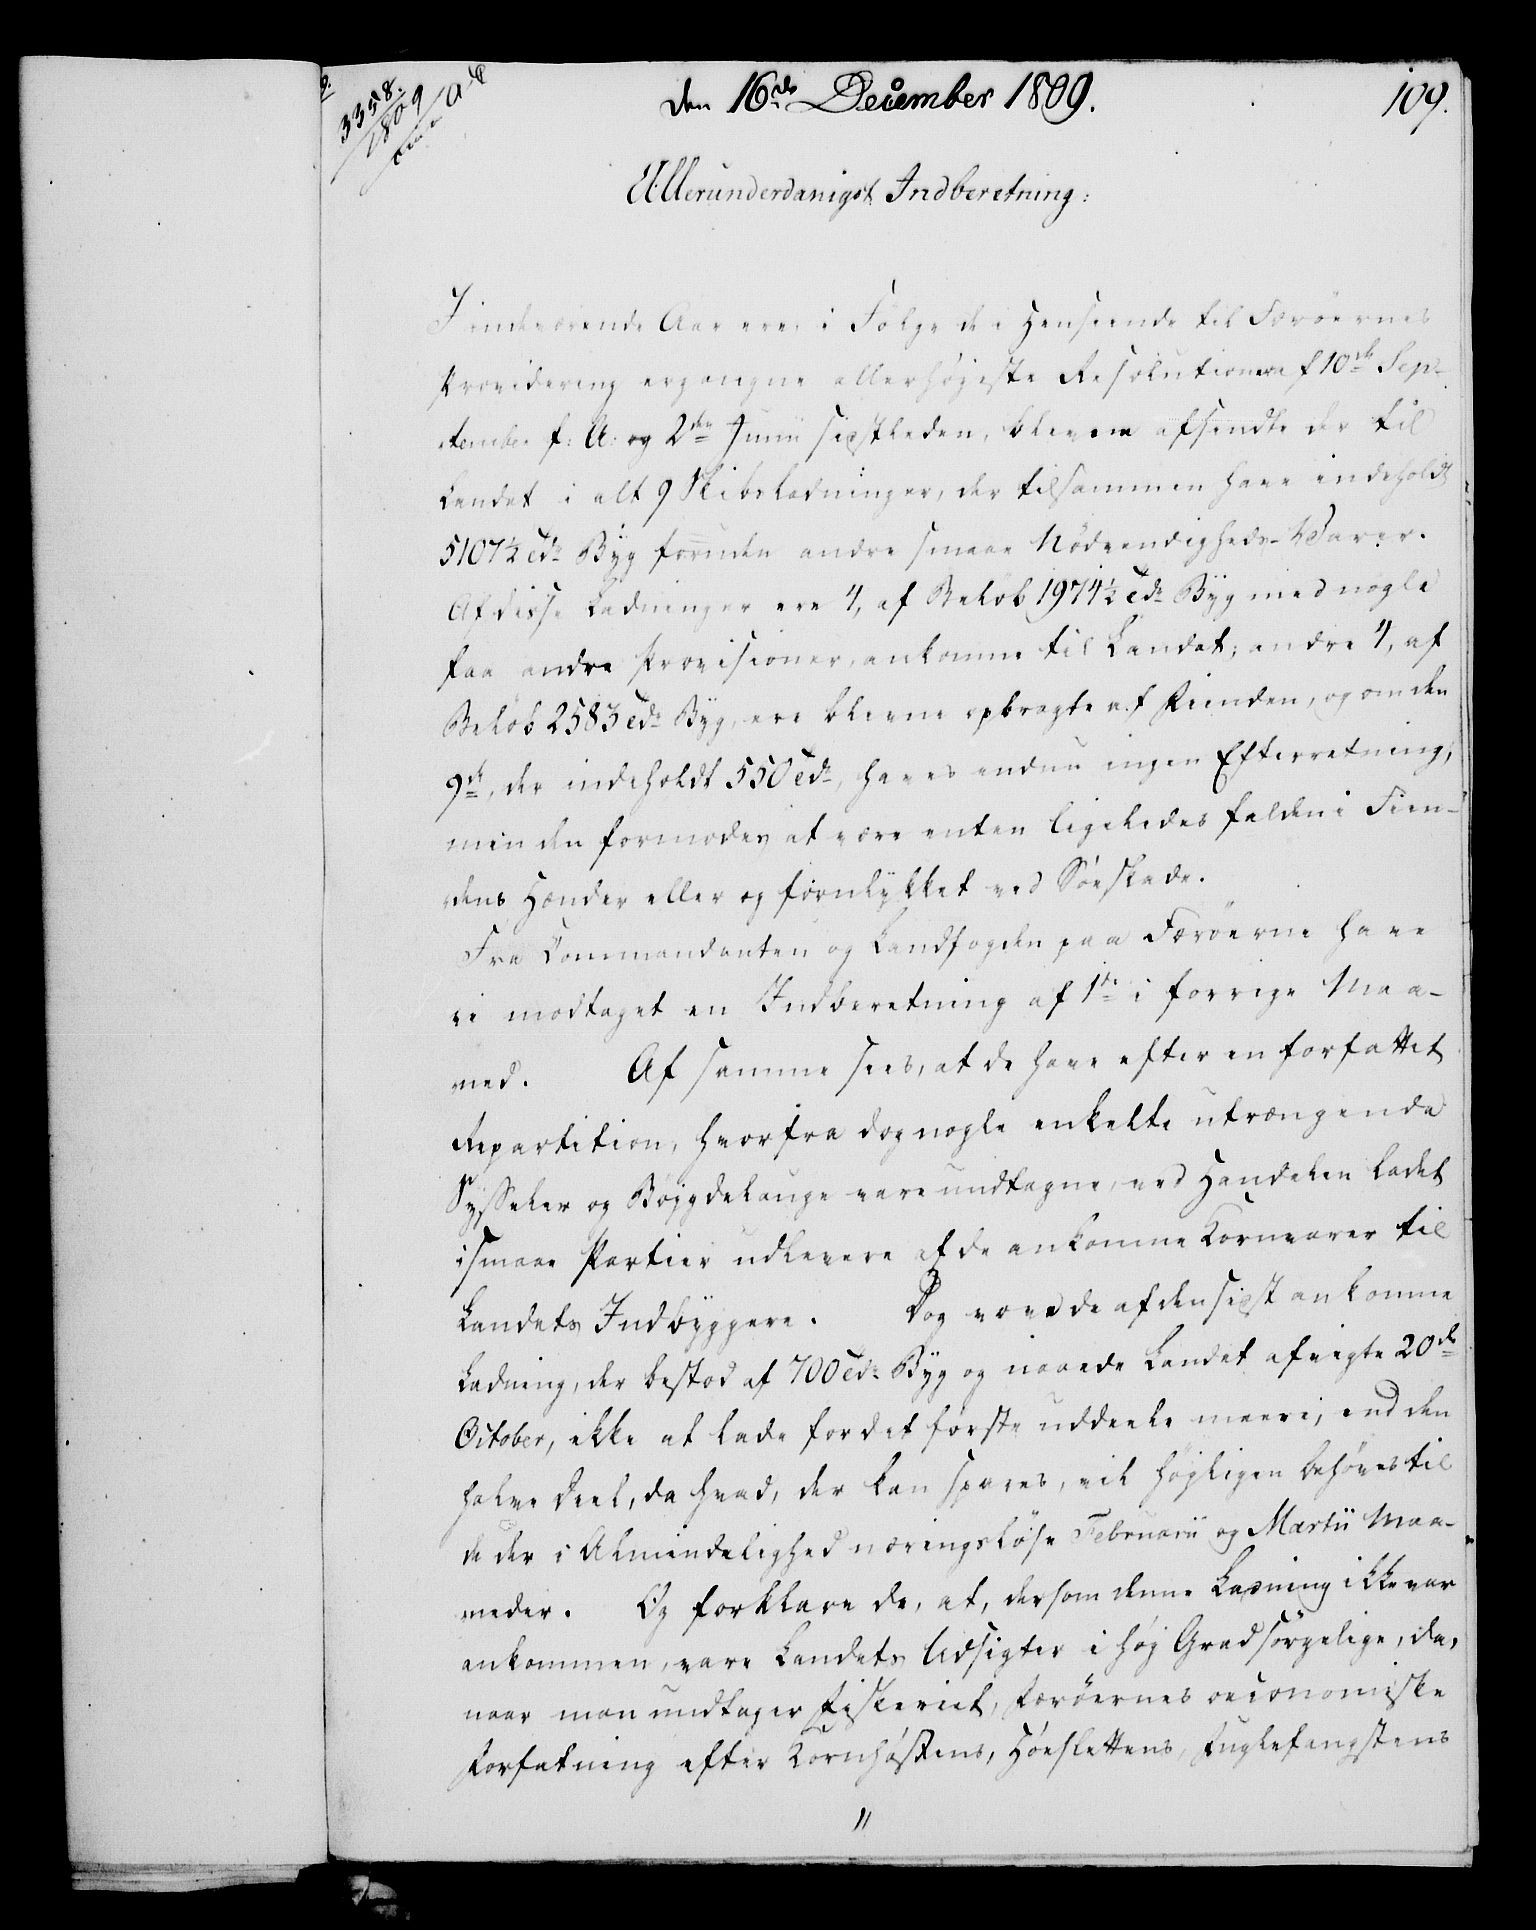 3358.
1809
den 16de December 1809.
109.
Allerunderdanigst Indberetning:
I indeværende Aar ere i Følge de i Henseende til Færøernes
Providering ergangne allerhøjeste Resolutioner af 10de Sep-
tember f: A: og 2den Junii sidstleden, blevne afsendte der til
Landet i alt 9 Skibsladninger, der tilsammen have indeholdt
5107½ Tdr Byg foruden andre smaae Nödvendigheds-Warer.
Af disse Ladninger ere 4, af Beløb 1974½ Tdr Byg med nogle
faa andre Provisioner, ankomne til Landet; andre 4, af
Beløb 2583 Tdr Byg, ere blevne opbragte af Fienden, og om den
9de, der indeholdt 550 Tdr, haves endnu ingen Efterretning,
men den formodes at være enten ligeledes falden i Fien-
dens Hænder eller og forulykket ved Söeskade.
Fra Commandanten og Landfogden paa Færöerne have
vi modtaget en Indberetning af 1ste i forrige Maa-
ned. Af samme sees, at de have efter en forfattet
Repartition, hvorfra dog nogle enkelte utrængende
Sysseler og Bøjgdelauge vare undtagne, ved Handelen ladet
i smaae Partier udlevere af de ankomne Kornvarer til
Landets Indbyggere. Dog vovede de af den sidst ankomne
Ladning, der bestod af 700 Tdr Byg og naaede Landet afvigte 20de
October, ikke at lade for det første uddeele meere, end den
halve Deel, da hvad, der kan spares, vil højligen behøves til
de der i Almindelighed næringsløse Februarii og Martii Maa-
neder. Og forklare de, at, dersom denne Ladning ikke var
ankommen, vare Landets Udsigter i høj Grad sørgelige, da,
naar man undtager Fiskeriet, Færöernes oeconomiske
Forfatning efter Kornhøstens, Höeslettens, Fuglefangstens